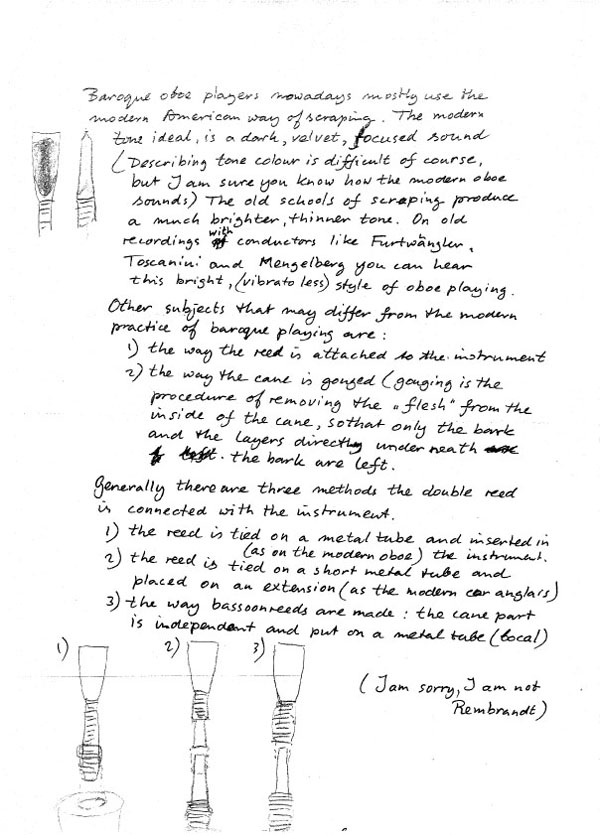 Baroque oboe players nowadays mostly use the
modern American way of scraping. The modern
tone ideal, is a dark, velvet, focused sound
(Describing tone colour is difficult of course,
but I am sure you know how the modern oboe
sounds) The old schools of scraping produce
a much brighter, thinner tone. On old
recordings with conductors like Furtwängler,
Toscanini and Mengelberg you can hear
this bright, (vibrato less) style of oboe playing.
Other subjects that may differ from the modern
practice of baroque playing are:
1) the way the reed is attached to the instrument
2) the way the cane is gouged (gouging is the
procedure of removing the „flesh" from the
inside of the cane, sothat only the bark
and the layers directly underneath
the bark are left.
Generally there are three methods the double reed
is connected with the instrument.
1) the reed is tied on a metal tube and inserted in
(as on the modern oboe) the instrument.
2) the reed is tied on a short metal tube and
placed on an extension (as the modern cor anglais)
3) the way bassoonreeds are made: the cane part
is independent and put on a metal tube (bocal)
1) 2) 3)
(I am sorry, I am not
Rembrandt)